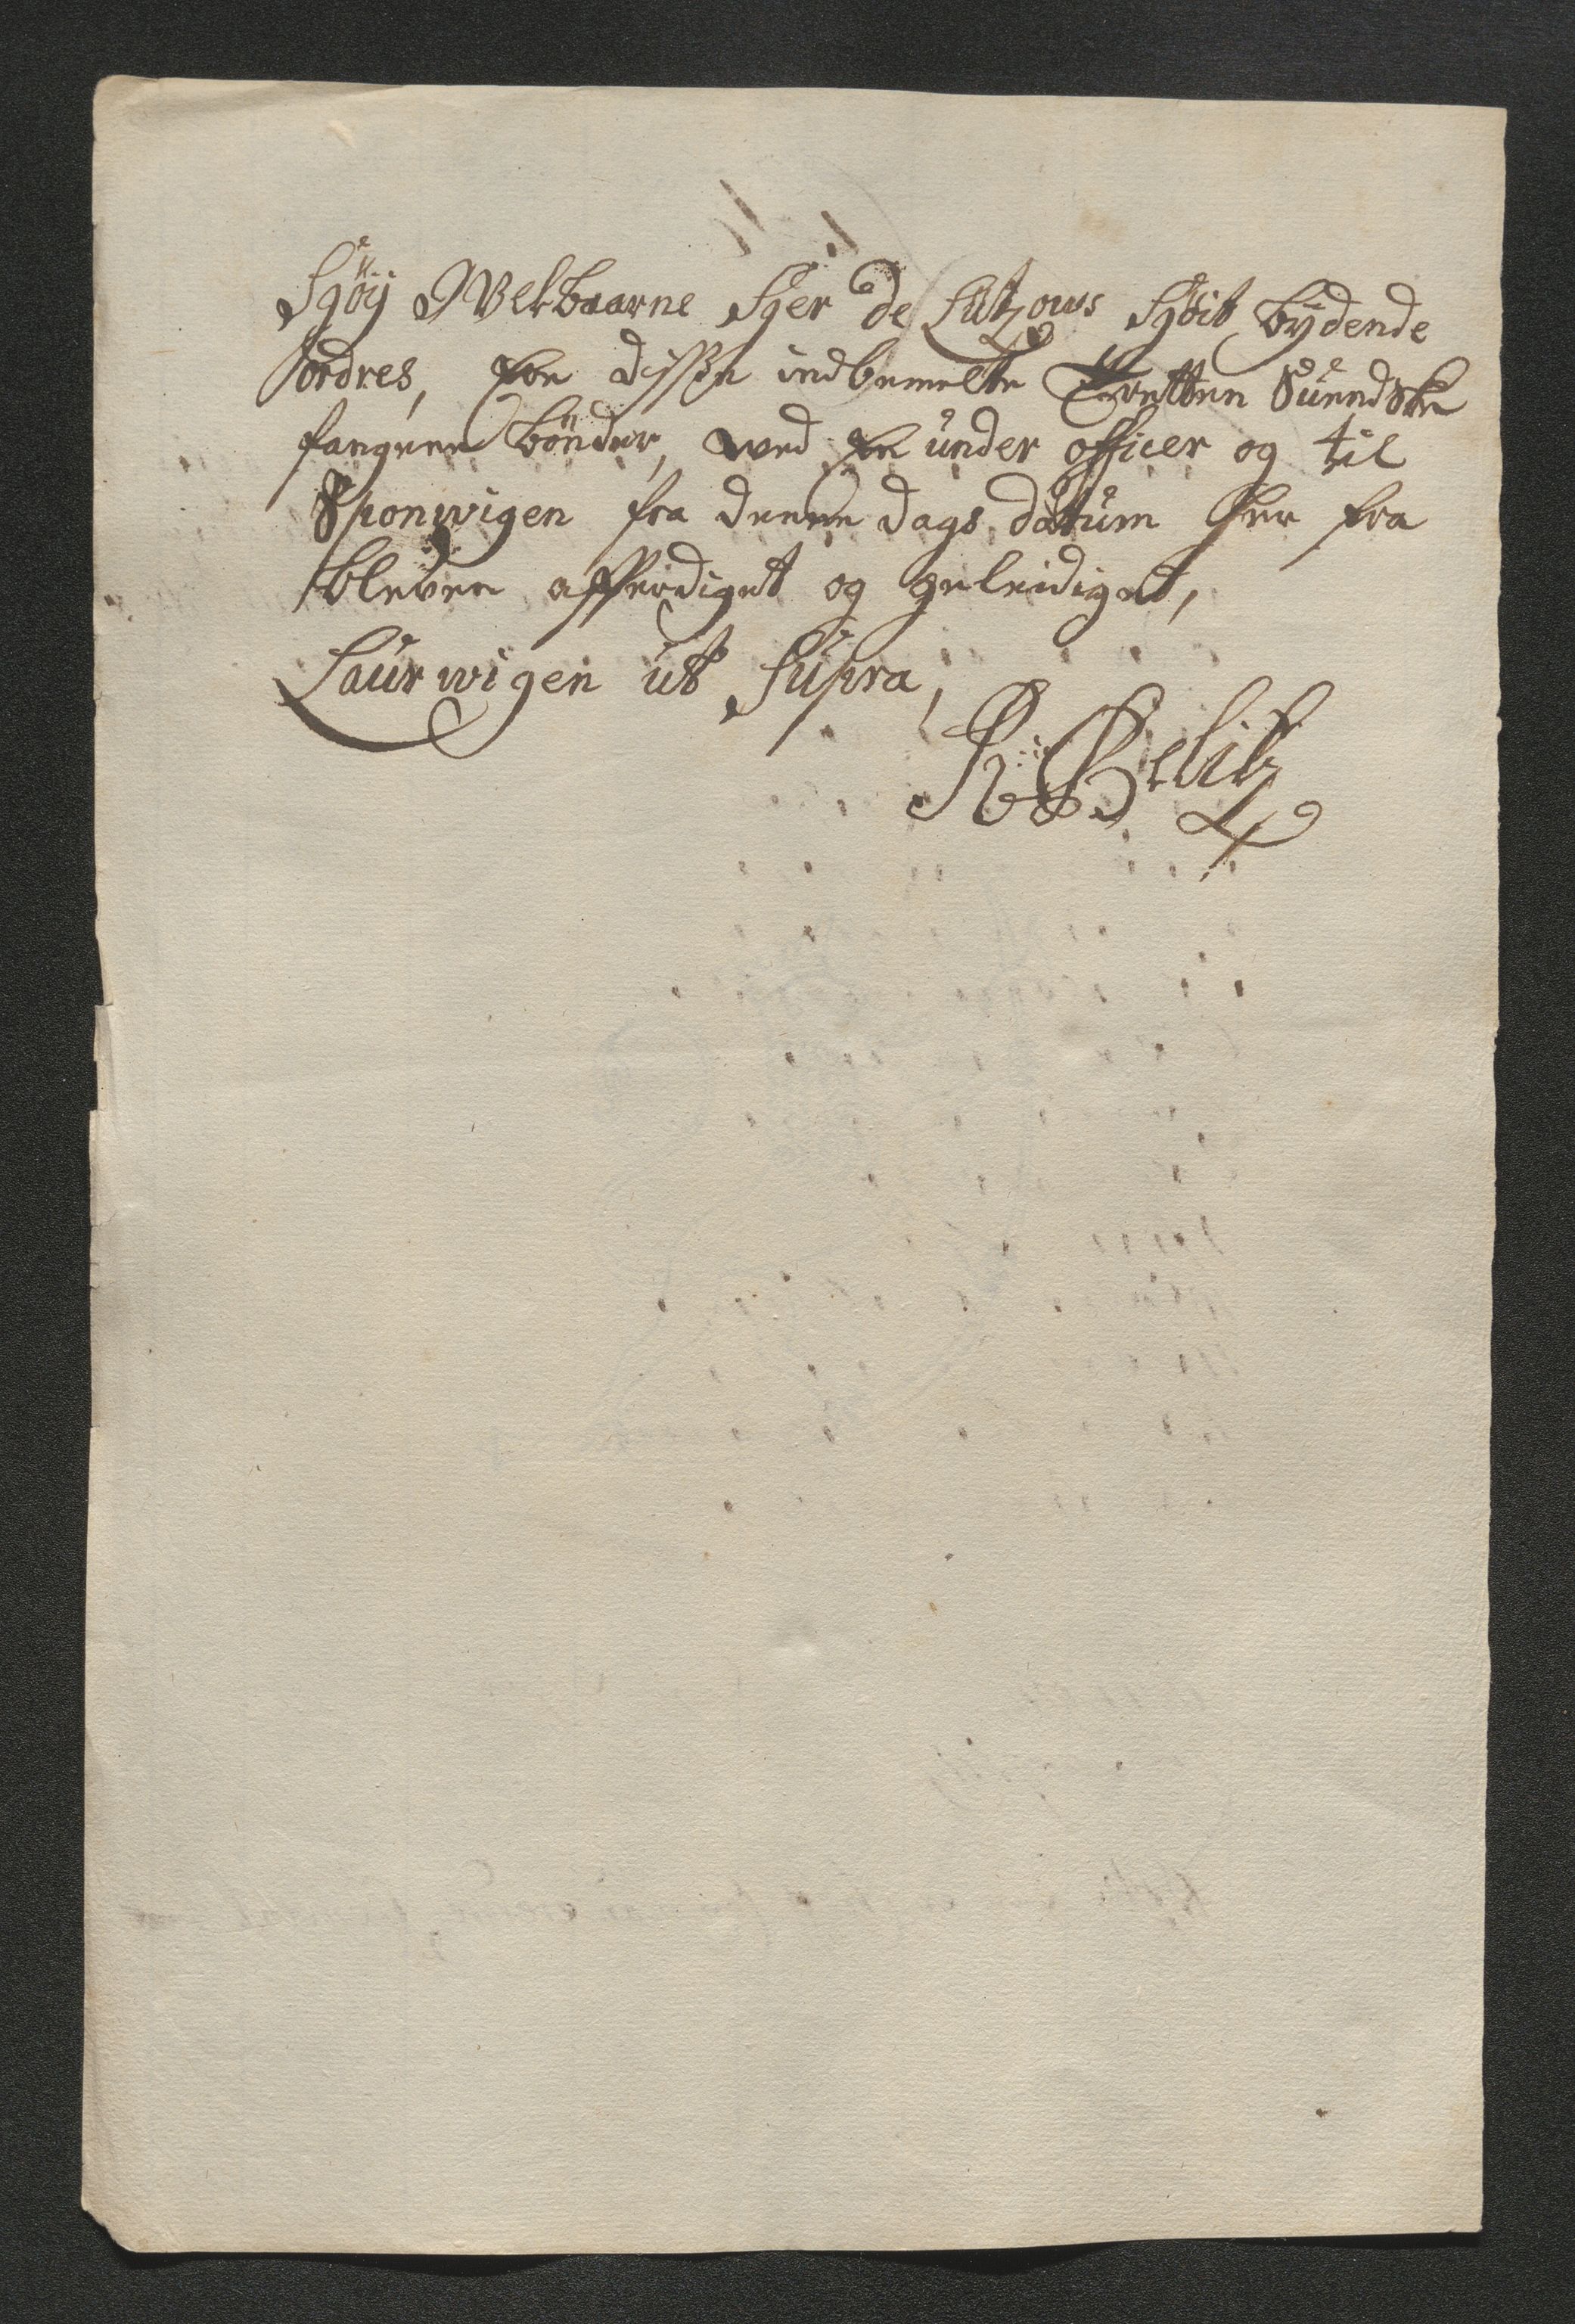 Høÿ Welbaarne Her de Lützows Høit bÿdende
ordres, Ere disße indbemelte Tretten Suendske
fangene bönder, med En under officer og til
Sponwigen fra denne dags datum her fra
bleven afferdiget og geleidiget,
Laurwigen ut Supra,
R Belitz